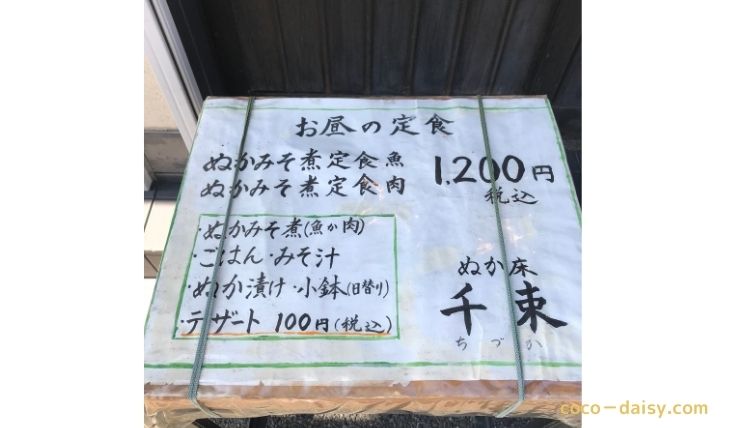 お昼の定食
ぬかみそ煮定食魚
ぬかみそ煮定食肉
1,200円
税込
・ぬかみそ煮(魚か肉)
・ごはん・みそ汁
・ぬか漬け・小鉢(日替り)
・デザート 100円(税込)
ぬか床
千束
ちづか
coco-daisy.com